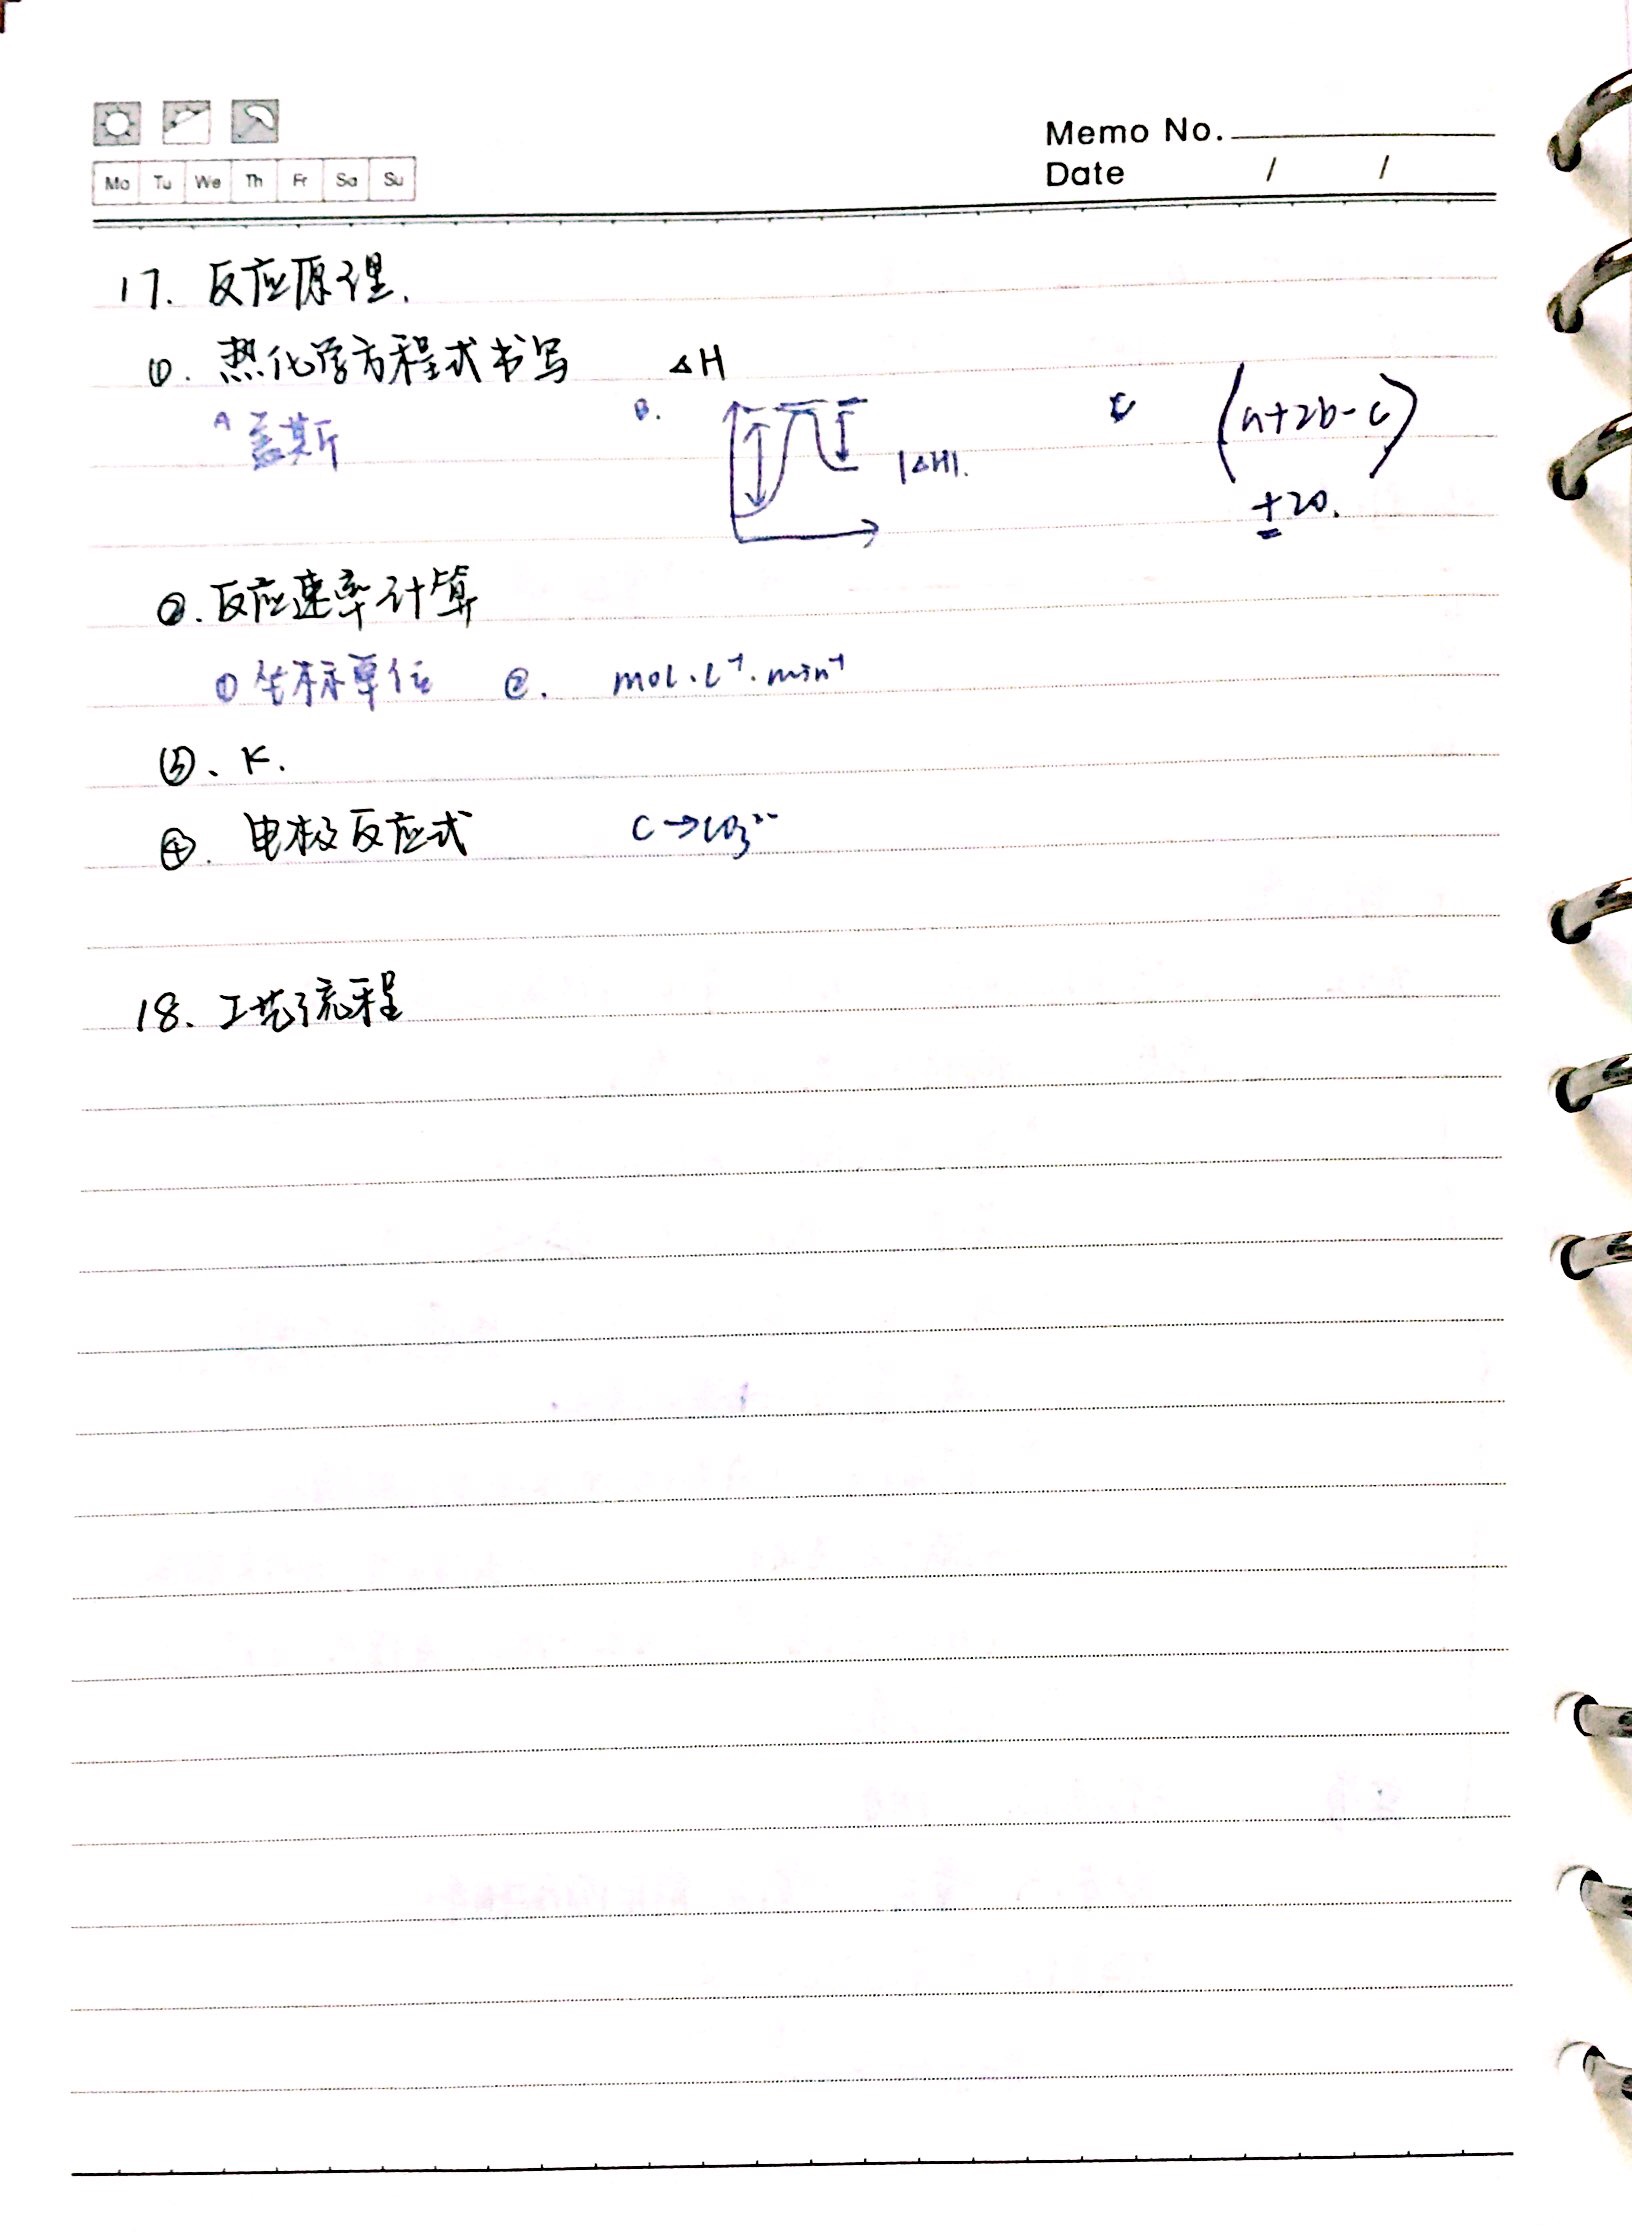 Memo No.
Mo Tu We Th Fr Sa Su
Date / /
17. 反应原理.
①. 热化学方程式书写 △H
A 盖斯 B. |△H|. C (a+2b-c)
±20.
②. 反应速率计算
① 坐标单位 ②. mol·L⁻¹·min⁻¹
③、K.
④. 电极反应式 C→CO₃²⁻
18. 工艺流程